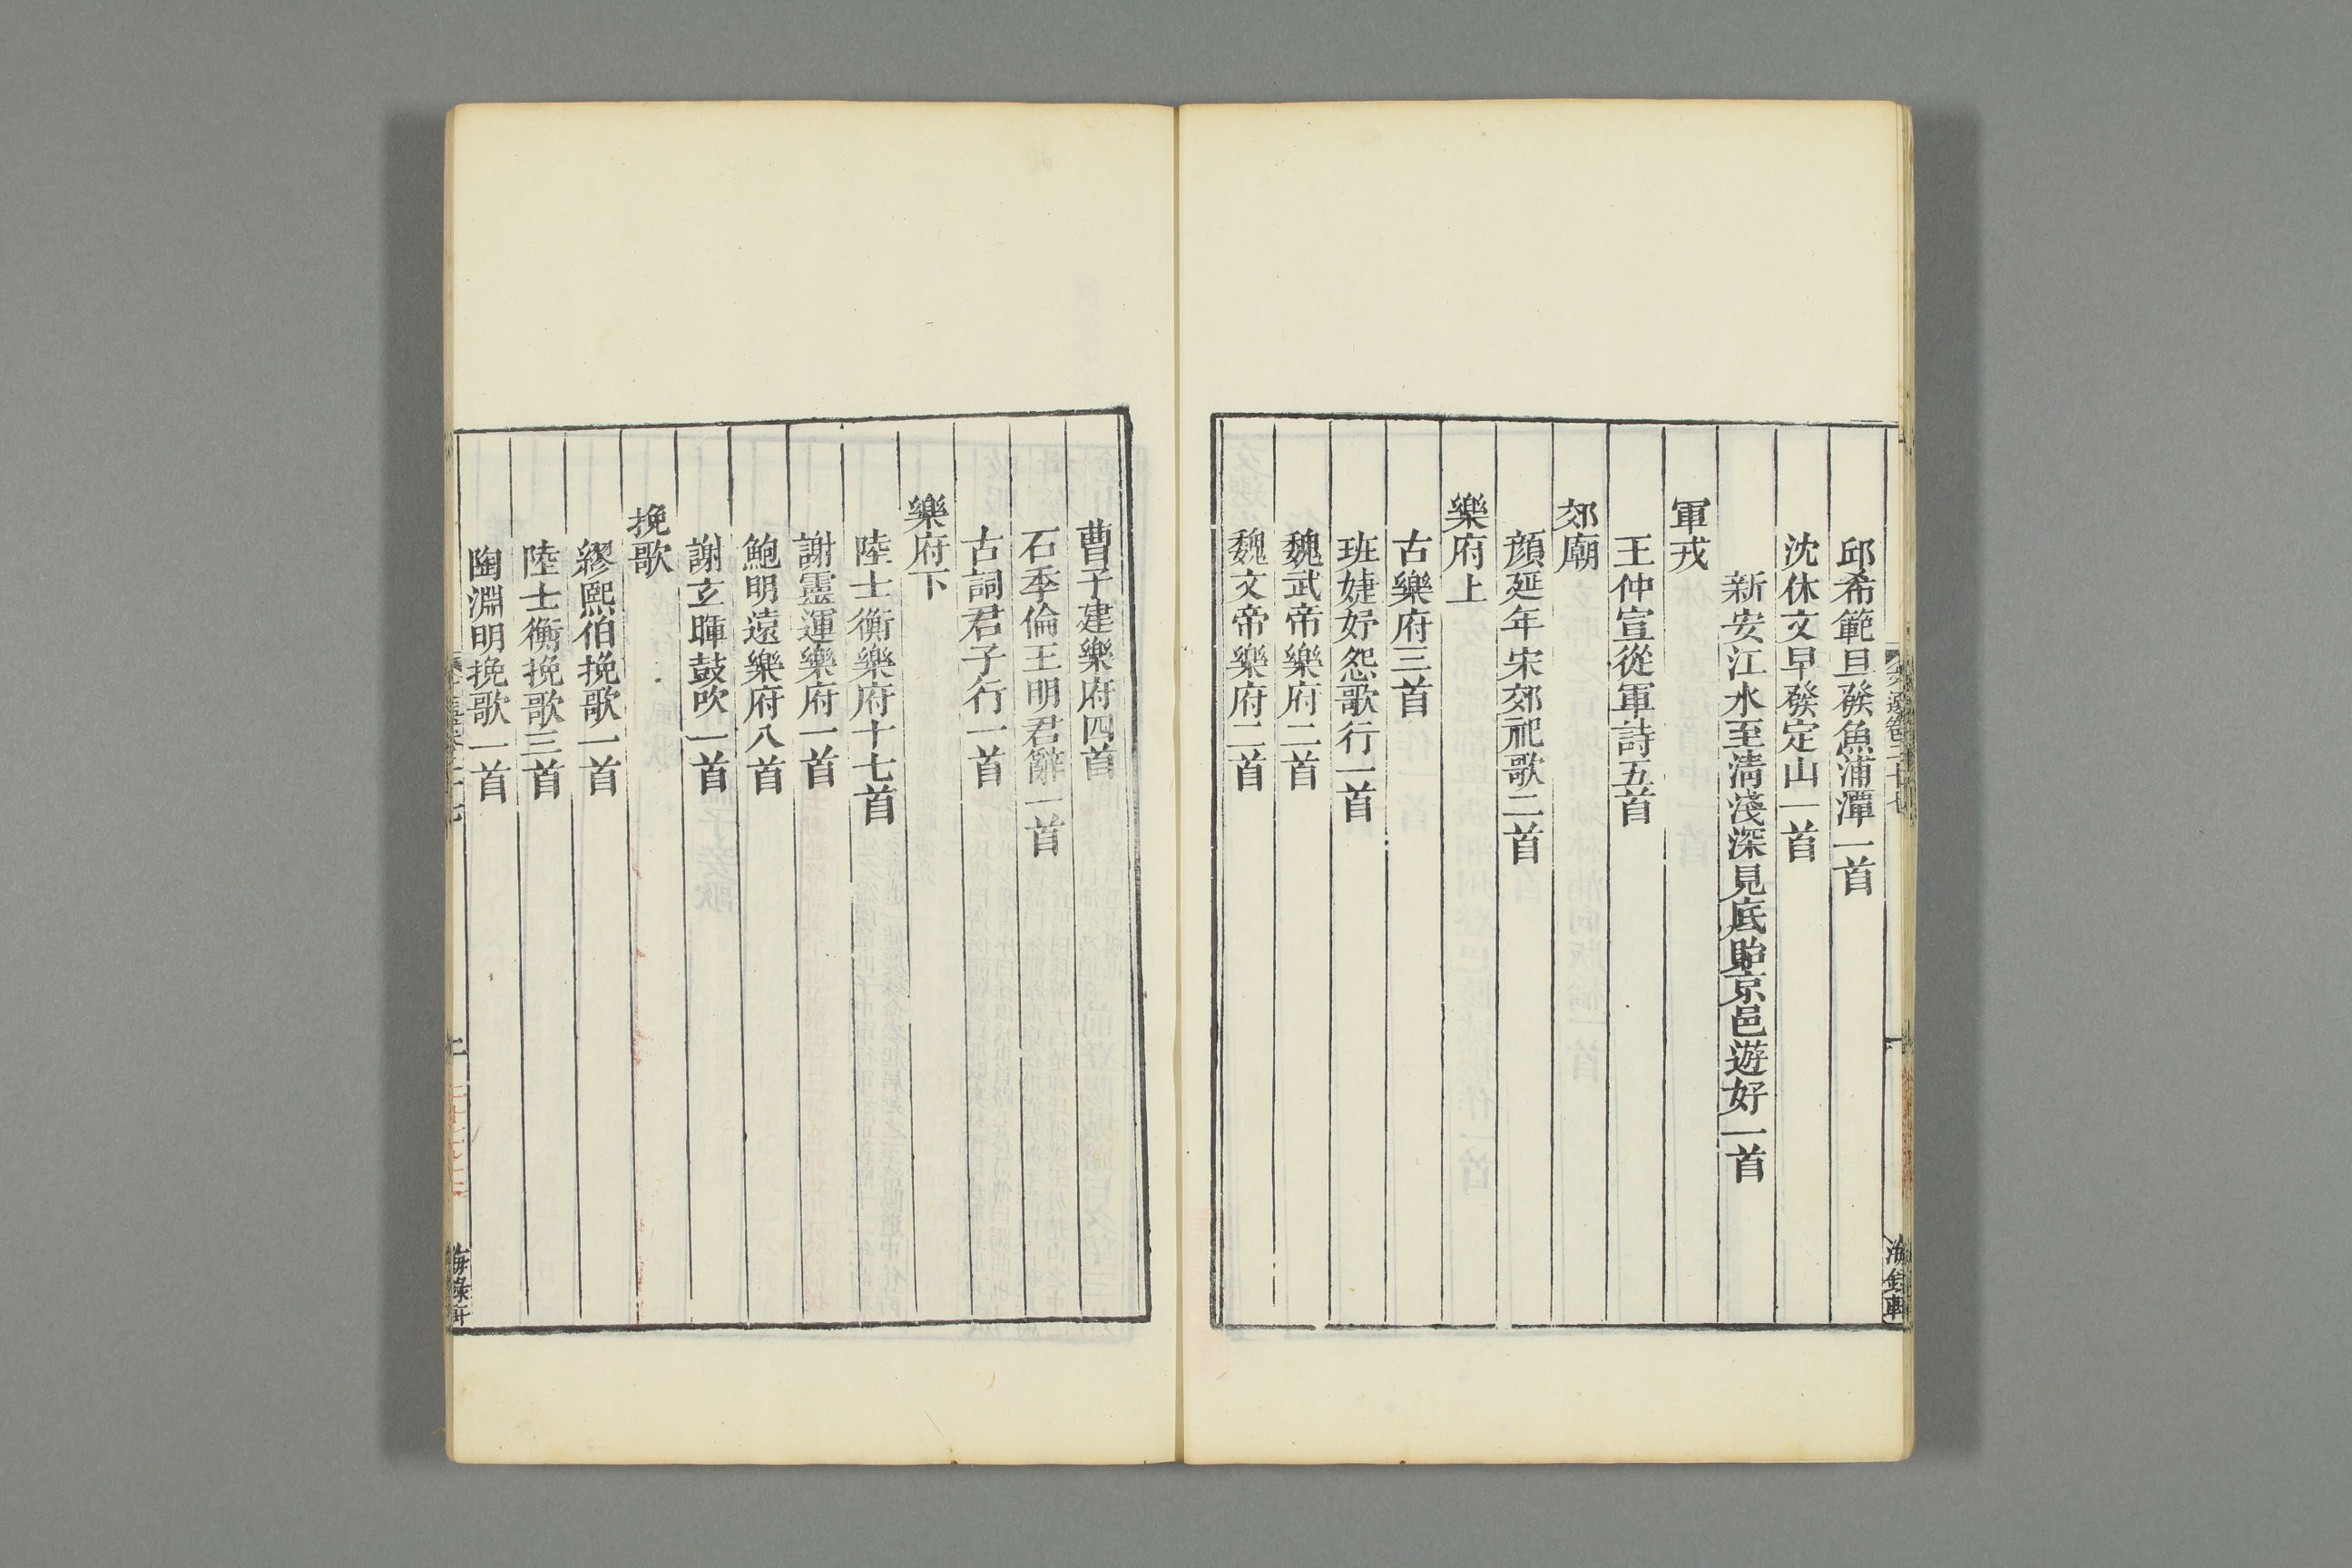 邱希範旦發魚浦潭一首
沈休文早發定山一首
新安江水至淸淺深見底貽京邑遊好一首
軍戎
王仲宣從軍詩五首
郊廟
顔延年宋郊祀歌二首
樂府上
古樂府三首
班婕妤怨歌行一首
魏武帝樂府二首
魏文帝樂府二首
曹子建樂府四首
石季倫王明君辭一首
古詞君子行一首
樂府下
陸士衡樂府十七首
謝靈運樂府一首
鮑明遠樂府八首
謝玄暉鼓吹一首
挽歌
繆熙伯挽歌一首
陸士衡挽歌三首
陶淵明挽歌一首
海錄軒